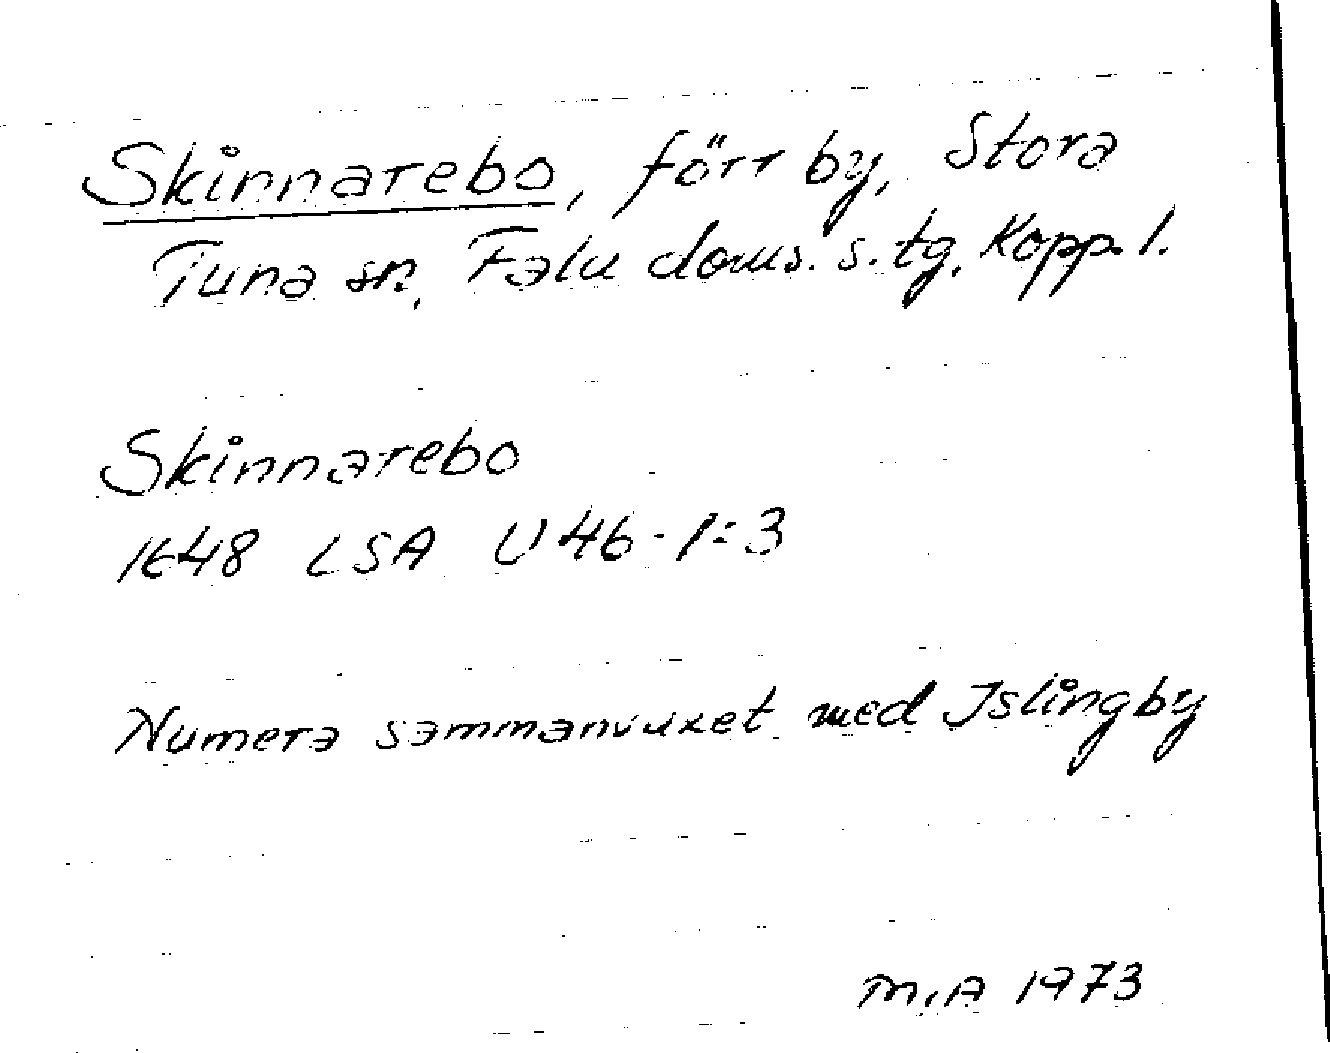 Skinnarebo, förr by, Stora
Tuna sn, Falu doms. s. tg, Kopp. l.
Skinnarebo
1648 LSA U46-1:3
Numera sammanvuxet med Islingby
M.A 1973